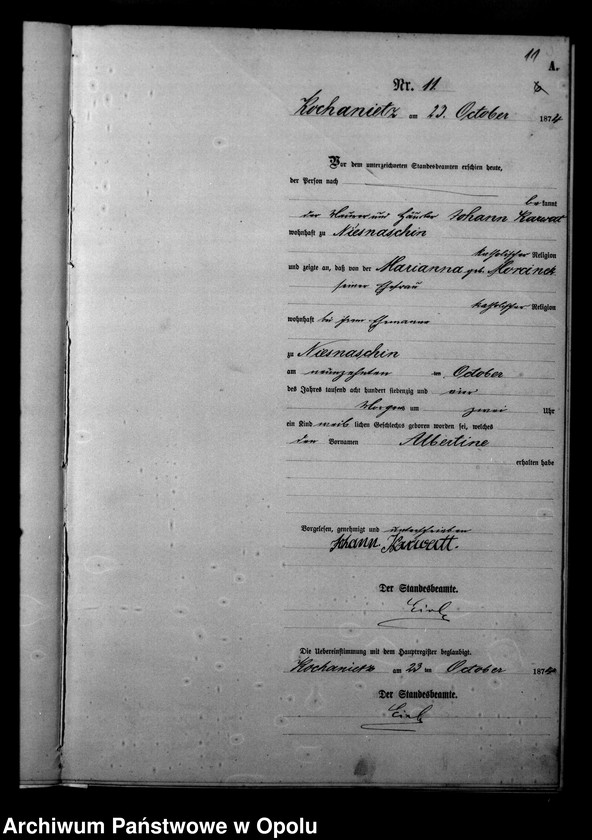 11
A.
Nr. 11
Kochanietz am 23. October 1874
Vor dem unterzeichneten Standesbeamten erschien heute,
der Person nach
bekannt
der Maurer und Häusler Johann Karwatt
wohnhaft zu Niesnaschin
katholischer Religion
und zeigte an, daß von der Marianna geb. Morcinek
seiner Ehefrau
katholischer Religion
wohnhaft bei ihrem Ehemanne
zu Niesnaschin
am neunzehnten ten October
des Jahres tausend acht hundert siebenzig und vier
Morgens um zwei Uhr
ein Kind weiblichen Geschlechts geboren worden sei, welches
den Vornamen Albertine
erhalten habe
Vorgelesen, genehmigt und unterschrieben
Johann Karwatt.
Der Standesbeamte.
Die Uebereinstimmung mit dem Hauptregister beglaubigt.
Kochanietz am 23 ten October 1874
Der Standesbeamte.
Archiwum Państwowe w Opolu